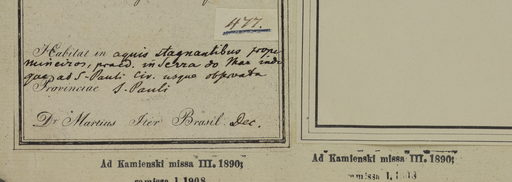 477.
Habitat in aquis stagnantibus prope
mineiros, praed. in Serra do Mar
ad S. Pauli Civ. usque
Provinciae S. Pauli
Dr Martius Iter Brasil. Dec.
Ad Kamienski missa III. 1890;
Ad Kamienski missa III. 1890;
remissa I. 1908
remissa I. 1908